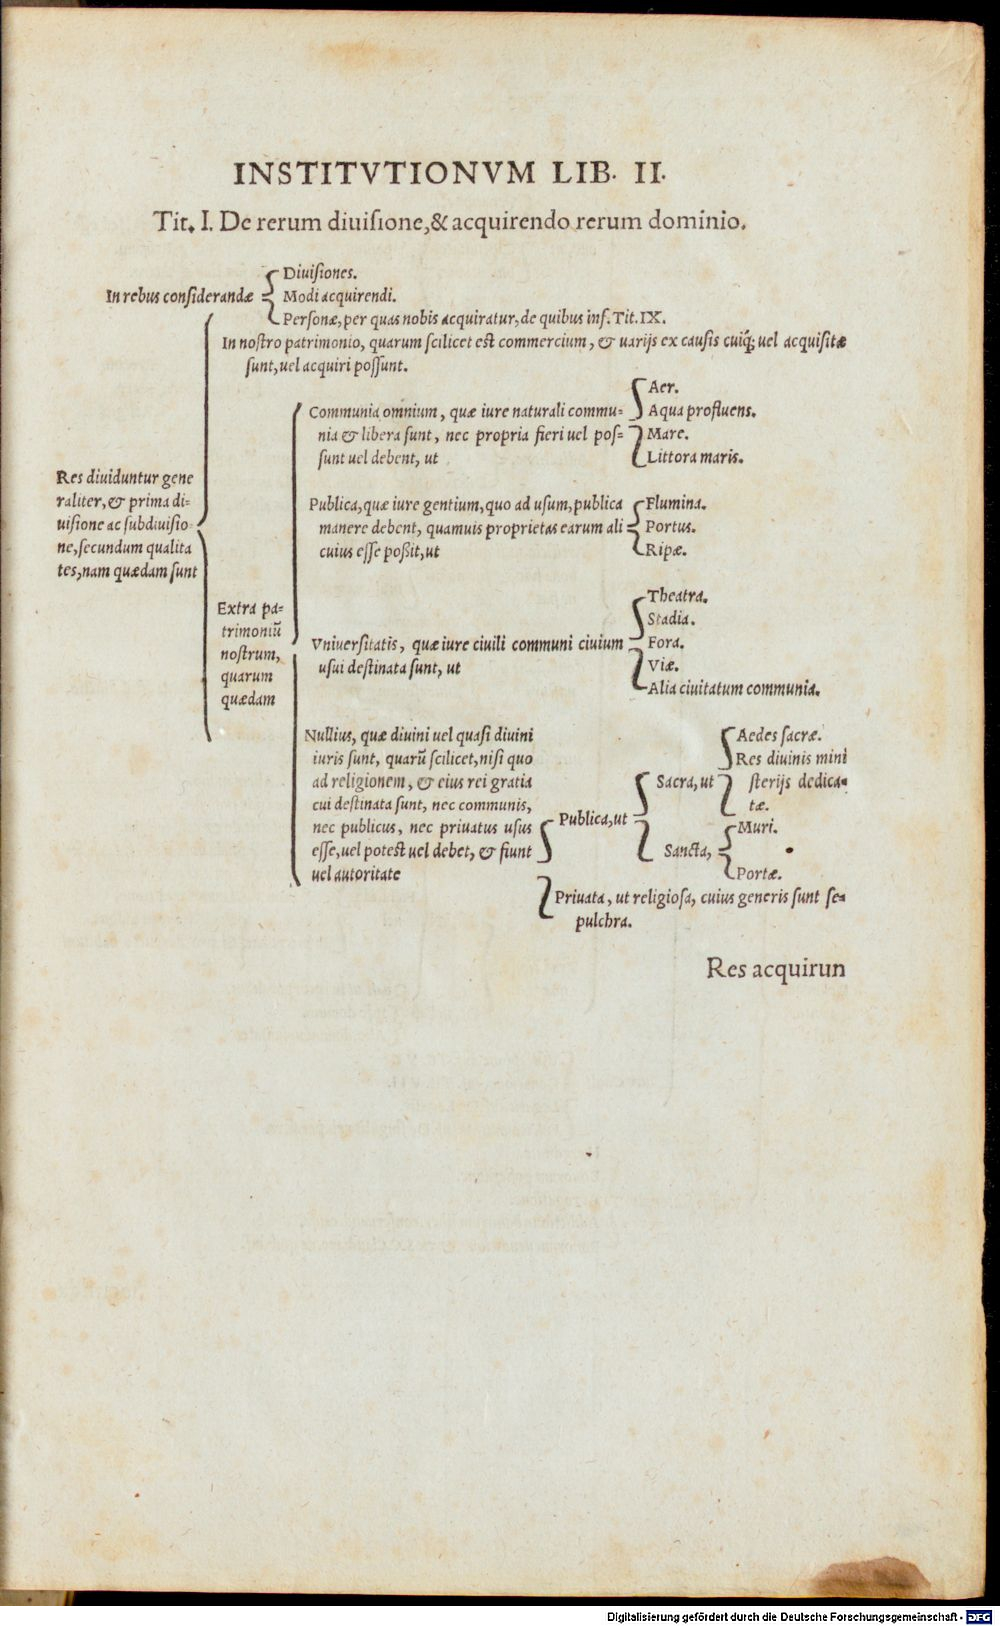 INSTITVTIONVM LIB. II.
Tit. I. De rerum diuiſione, & acquirendo rerum dominio.
In rebus conſiderandæ
Diuiſiones.
Modi acquirendi.
Perſonæ, per quas nobis acquiratur, de quibus inf. Tit. IX.
Res diuiduntur gene
raliter, & prima di-
uiſione ac ſubdiuiſio-
ne, ſecundum qualita
tes, nam quædam ſunt
In noſtro patrimonio, quarum ſcilicet eſt commercium, & uarijs ex cauſis cuiq; uel acquiſitæ
ſunt, uel acquiri poſſunt.
Extra pa-
trimoniũ
noſtrum,
quarum
quædam
Communia omnium, quæ iure naturali commu-
nia & libera ſunt, nec propria fieri uel poſ-
ſunt uel debent, ut
Aer.
Aqua profluens.
Mare.
Littora maris.
Publica, quæ iure gentium, quo ad uſum, publica
manere debent, quamuis proprietas earum ali
cuius eſſe poßit, ut
Flumina.
Portus.
Ripæ.
Vniuerſitatis, quæ iure ciuili communi ciuium
uſui deſtinata ſunt, ut
Theatra.
Stadia.
Fora.
Viæ.
Alia ciuitatum communia.
Nullius, quæ diuini uel quaſi diuini
iuris ſunt, quarũ ſcilicet, niſi quo
ad religionem, & eius rei gratia
cui deſtinata ſunt, nec communis,
nec publicus, nec priuatus uſus
eſſe, uel poteſt uel debet, & fiunt
uel autoritate
Publica, ut
Sacra, ut
Aedes ſacræ.
Res diuinis mini
ſterijs dedica-
tæ.
Sancta,
Muri.
Portæ.
Priuata, ut religioſa, cuius generis ſunt ſe-
pulchra.
Res acquirun
Digitalisierung gefördert durch die Deutsche Forschungsgemeinschaft - DFG